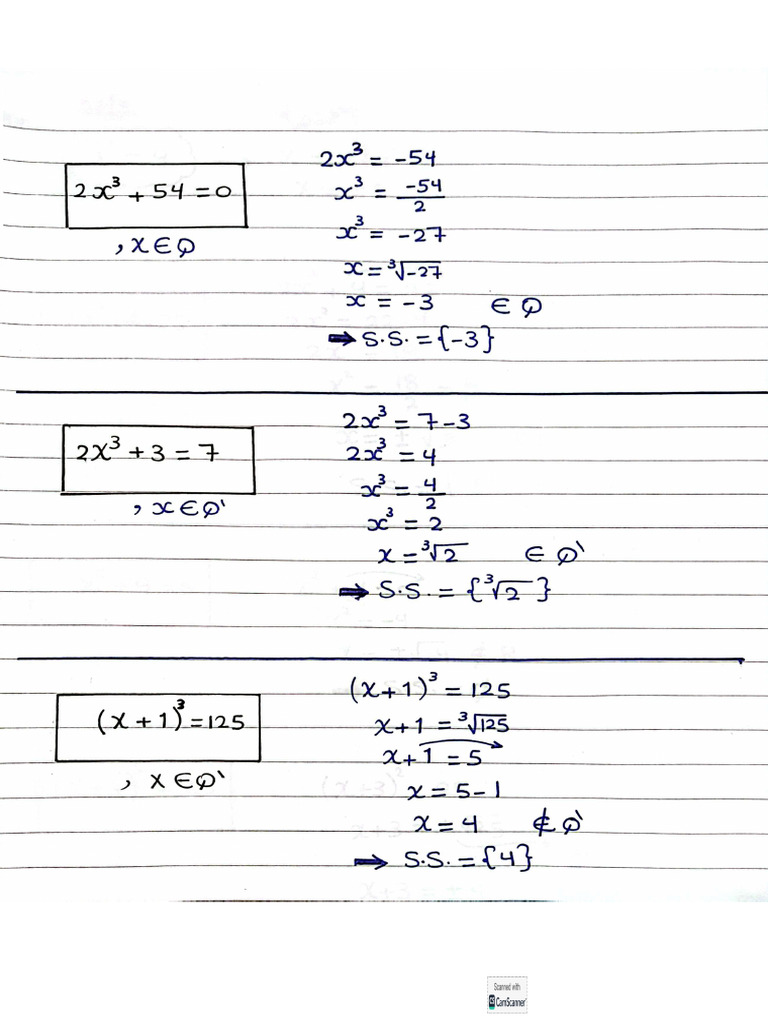 2x³ + 54 = 0
, x ∈ Q
2x³ = -54
x³ = -54/2
x³ = -27
x = ³√-27
x = -3 ∈ Q
⇒ S.S. = {-3}
2x³ + 3 = 7
, x ∈ Q'
2x³ = 7-3
2x³ = 4
x³ = 4/2
x³ = 2
x = ³√2 ∈ Q'
⇒ S.S. = {³√2}
(x + 1)³ = 125
, x ∈ Q'
(x+1)³ = 125
x+1 = ³√125
x+1 = 5
x = 5-1
x = 4 ∉ Q'
⇒ S.S. = {4}
Scanned with
CS CamScanner